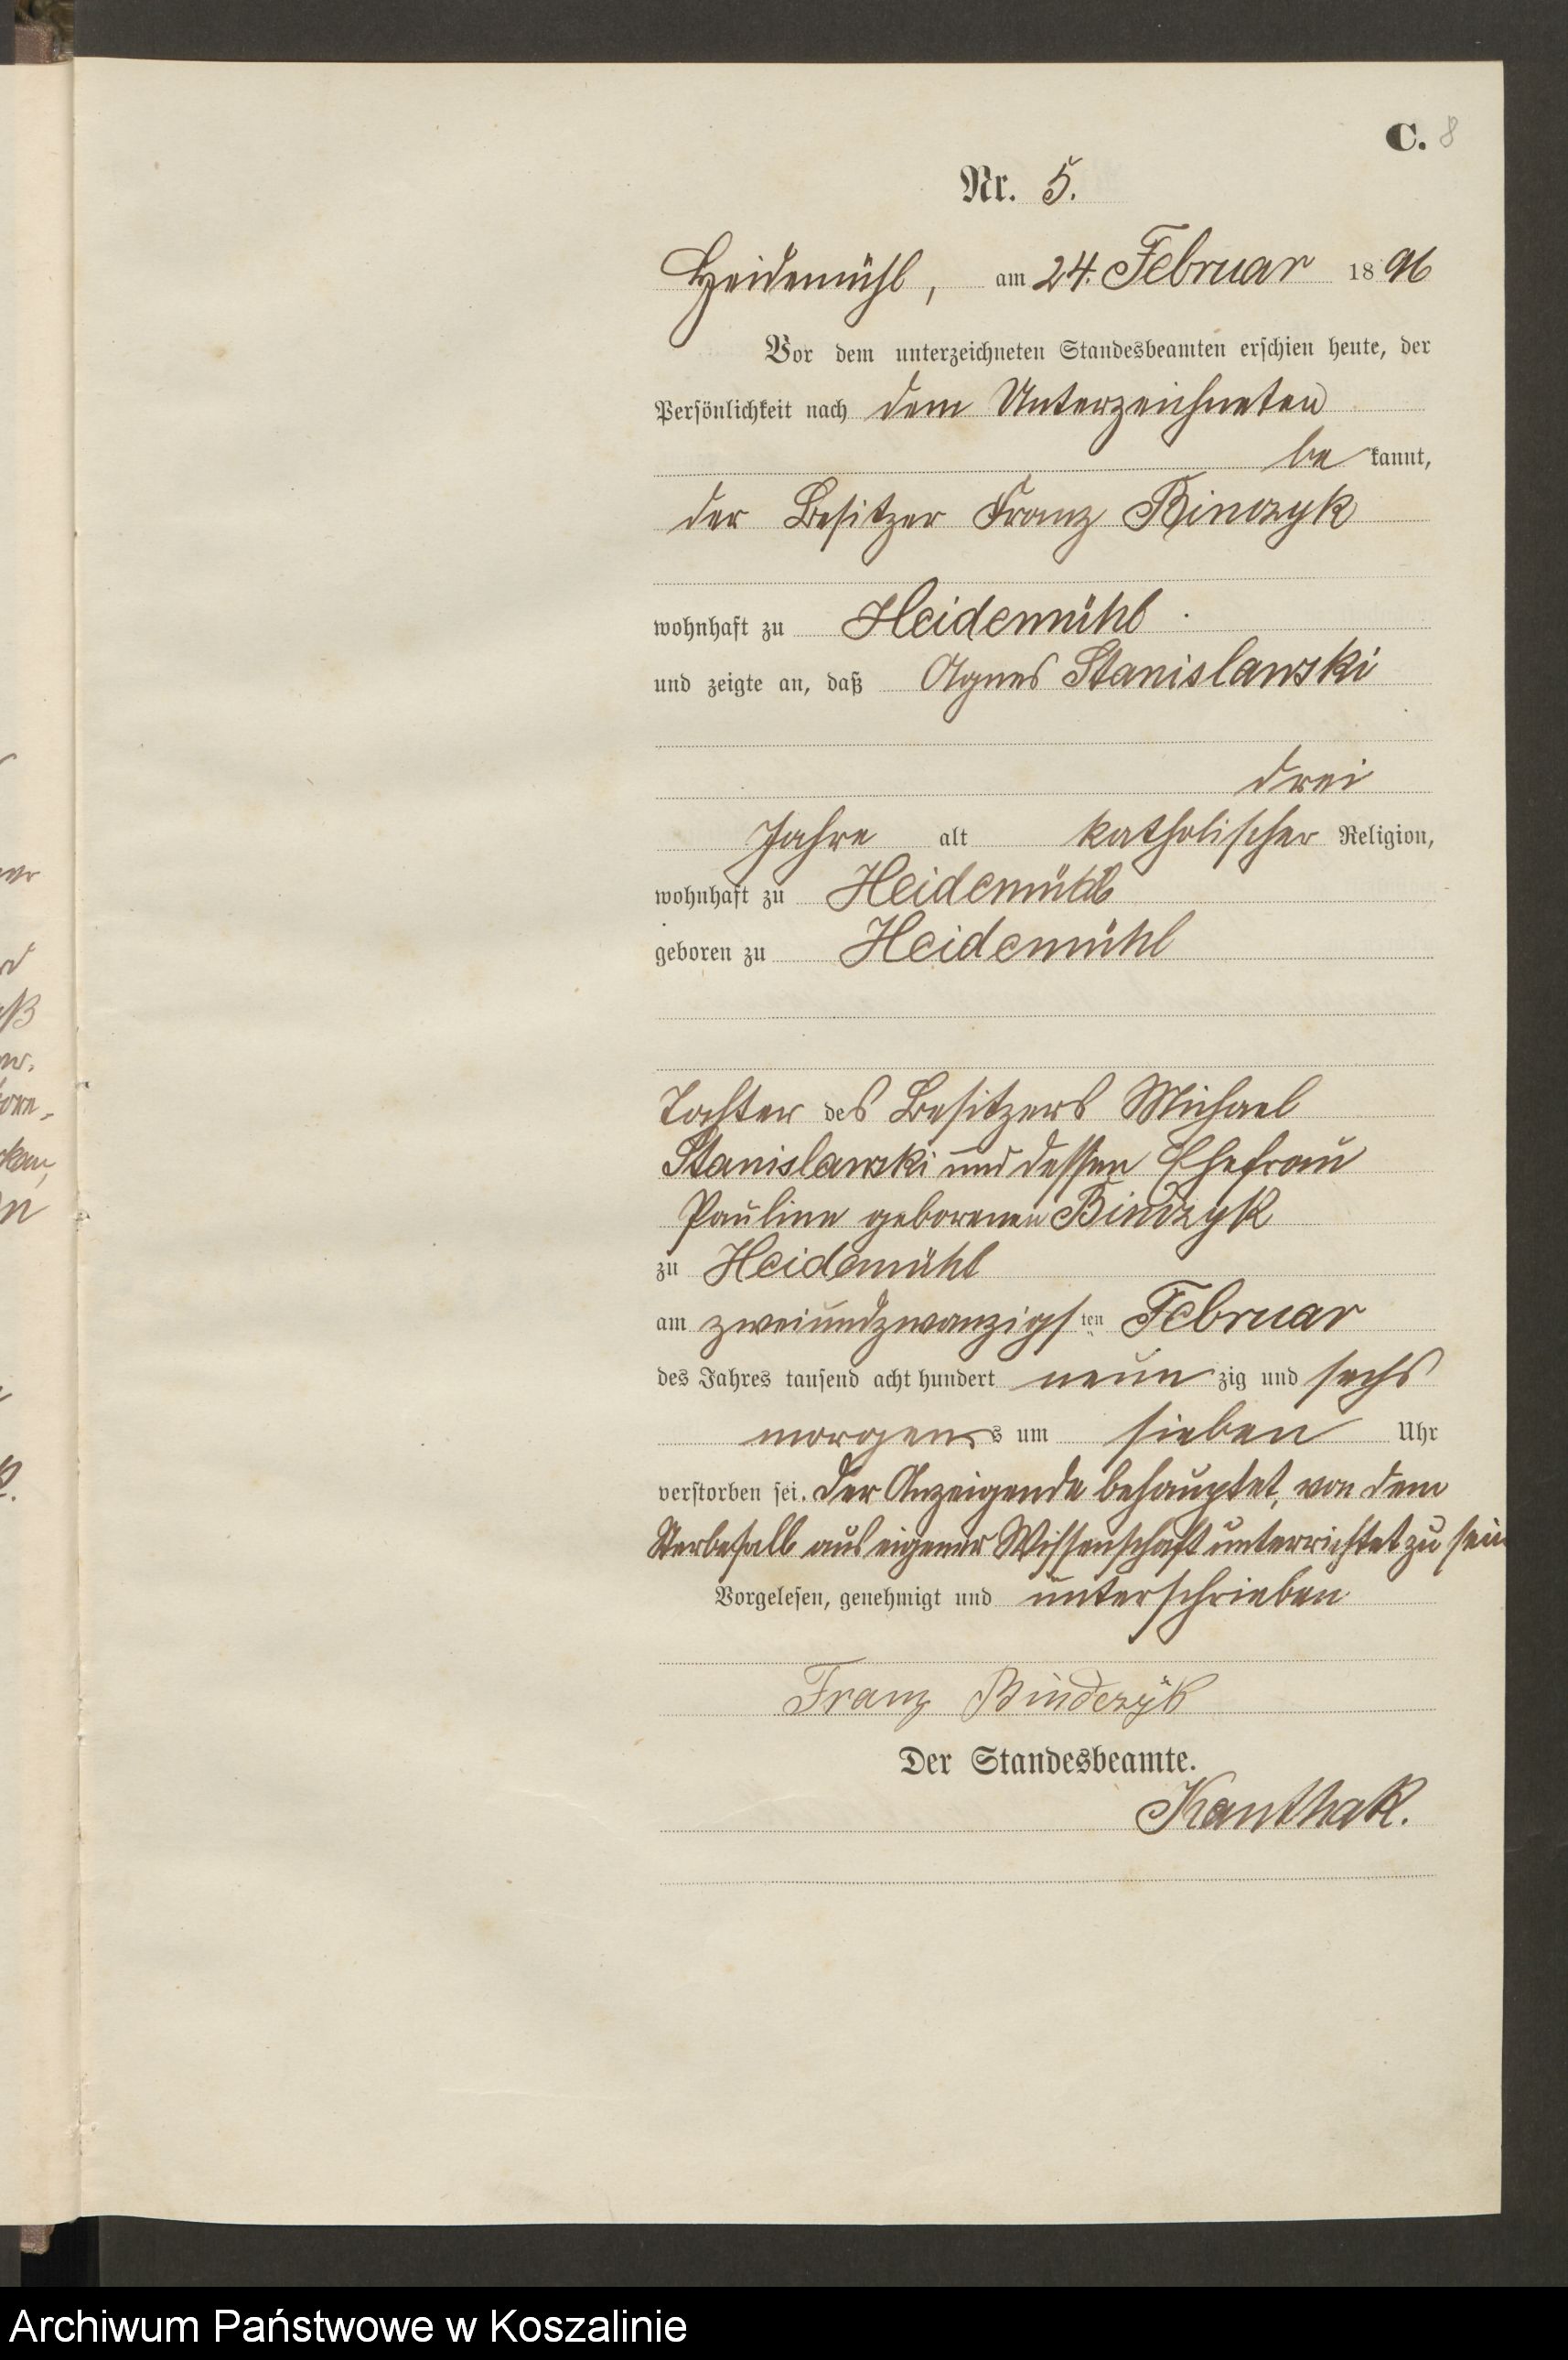 C. 8
Nr. 5.
Heidemühl, am 24. Februar 1896
Vor dem unterzeichneten Standesbeamten erschien heute, der
Persönlichkeit nach dem Unterzeichneten
be kannt,
der Besitzer Franz Binczyk
wohnhaft zu Heidemühl
und zeigte an, daß Agnes Stanislawski
drei
Jahre alt katholischer Religion,
wohnhaft zu Heidemühl
geboren zu Heidemühl
Tochter des Besitzers Michael
Stanislawski und dessen Ehefrau
Pauline geborenen Binczyk
zu Heidemühl
am zweiundzwanzigsten Februar
des Jahres tausend acht hundert neun zig und sechs
morgens um sieben Uhr
verstorben sei. Der Anzeigende behauptet, von dem
Sterbefall aus eigener Wissenschaft unterrichtet zu sein
Vorgelesen, genehmigt und unterschrieben
Franz Bindczÿk
Der Standesbeamte.
Kanthak.
Archiwum Państwowe w Koszalinie